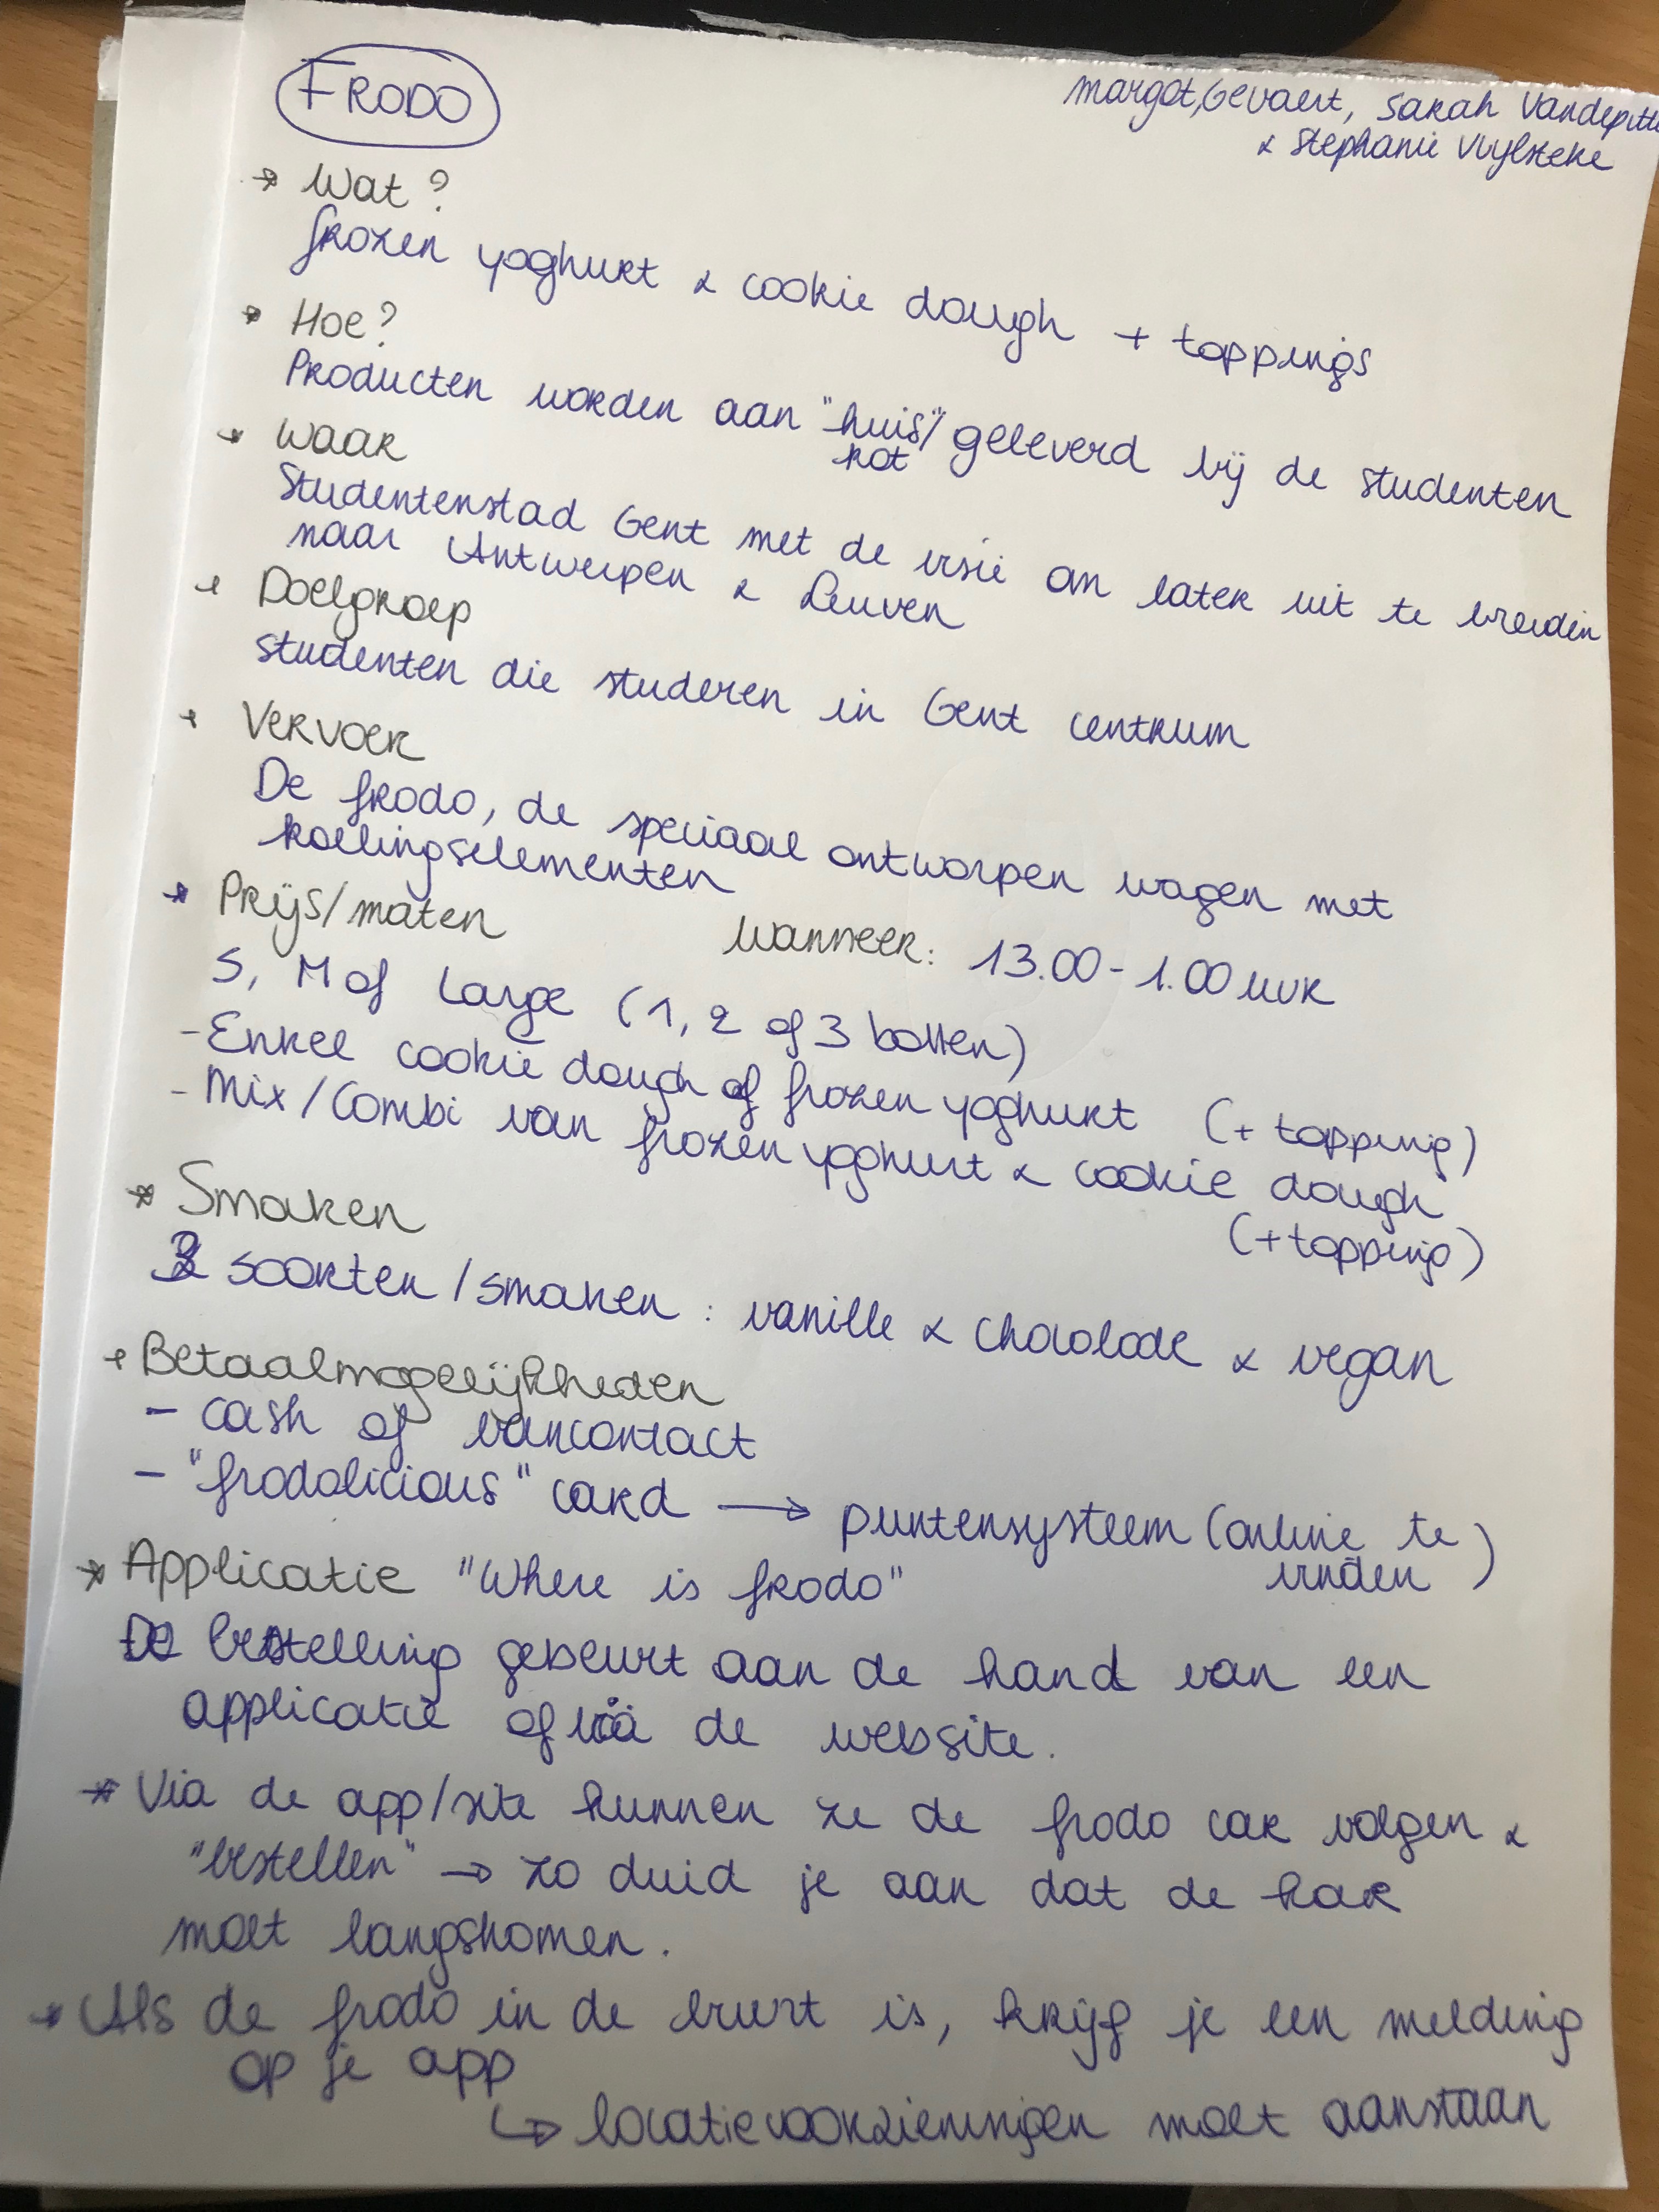 FRODO
Margot, Gevaert, Sarah Vandeputte
& Stephanie Vuylsteke
* Wat?
frozen yoghurt & cookie dough + toppings
* Hoe?
Producten worden aan "huis"/ geleverd bij de studenten
kot
* Waar
Studentenstad Gent met de visie om later uit te breiden
naar Antwerpen & Leuven
* Doelgroep
studenten die studeren in Gent centrum
* Vervoer
De frodo, de speciaal ontworpen wagen met
koelingselementen
* Prijs/maten
Wanneer: 13.00 - 1.00 uur
S, M of Large (1, 2 of 3 bollen)
- Enkel cookie dough of frozen yoghurt (+ topping)
- Mix/Combi van frozen yoghurt & cookie dough
(+ topping)
* Smaken
3 soorten/smaken: vanille & chocolade & vegan
* Betaalmogelijkheden
- cash of bancontact
- "frodolicious" card → puntensysteem (online te
vinden)
* Applicatie "Where is frodo"
De bestelling gebeurt aan de hand van een
applicatie of via de website.
* Via de app/site kunnen ze de frodo car volgen &
"bestellen" → zo duid je aan dat de kar
moet langskomen.
* Als de frodo in de buurt is, krijg je een melding
op je app
↳ locatievoorzieningen moet aanstaan